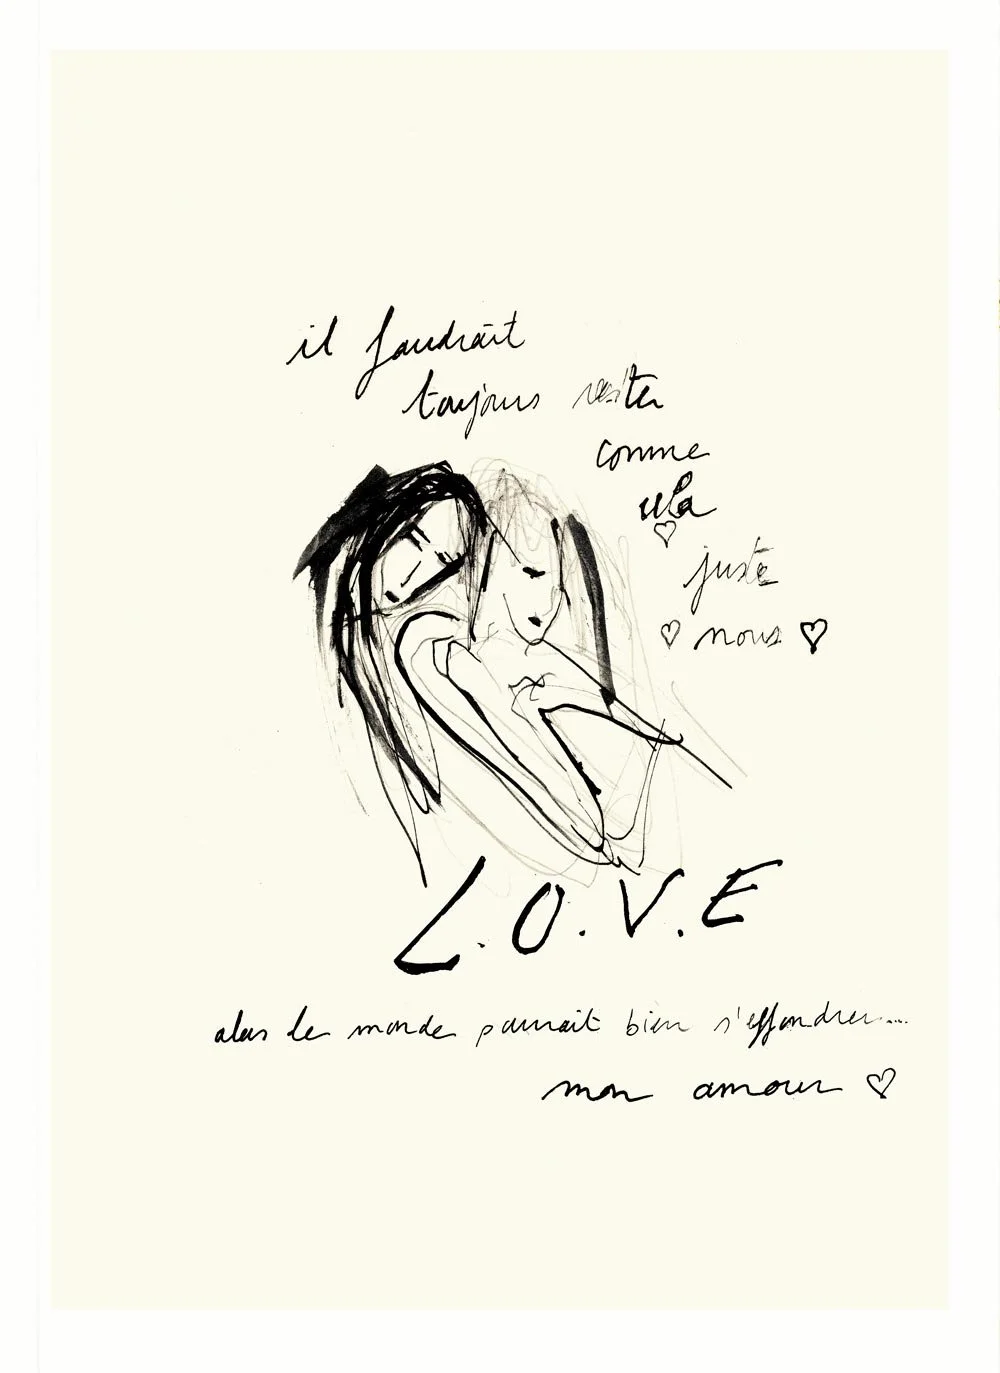 il faudrait
toujours rester
comme
cela
♡
juste
♡ nous ♡
L.O.V.E
alors le monde pourrait bien s'effondrer....
mon amour ♡